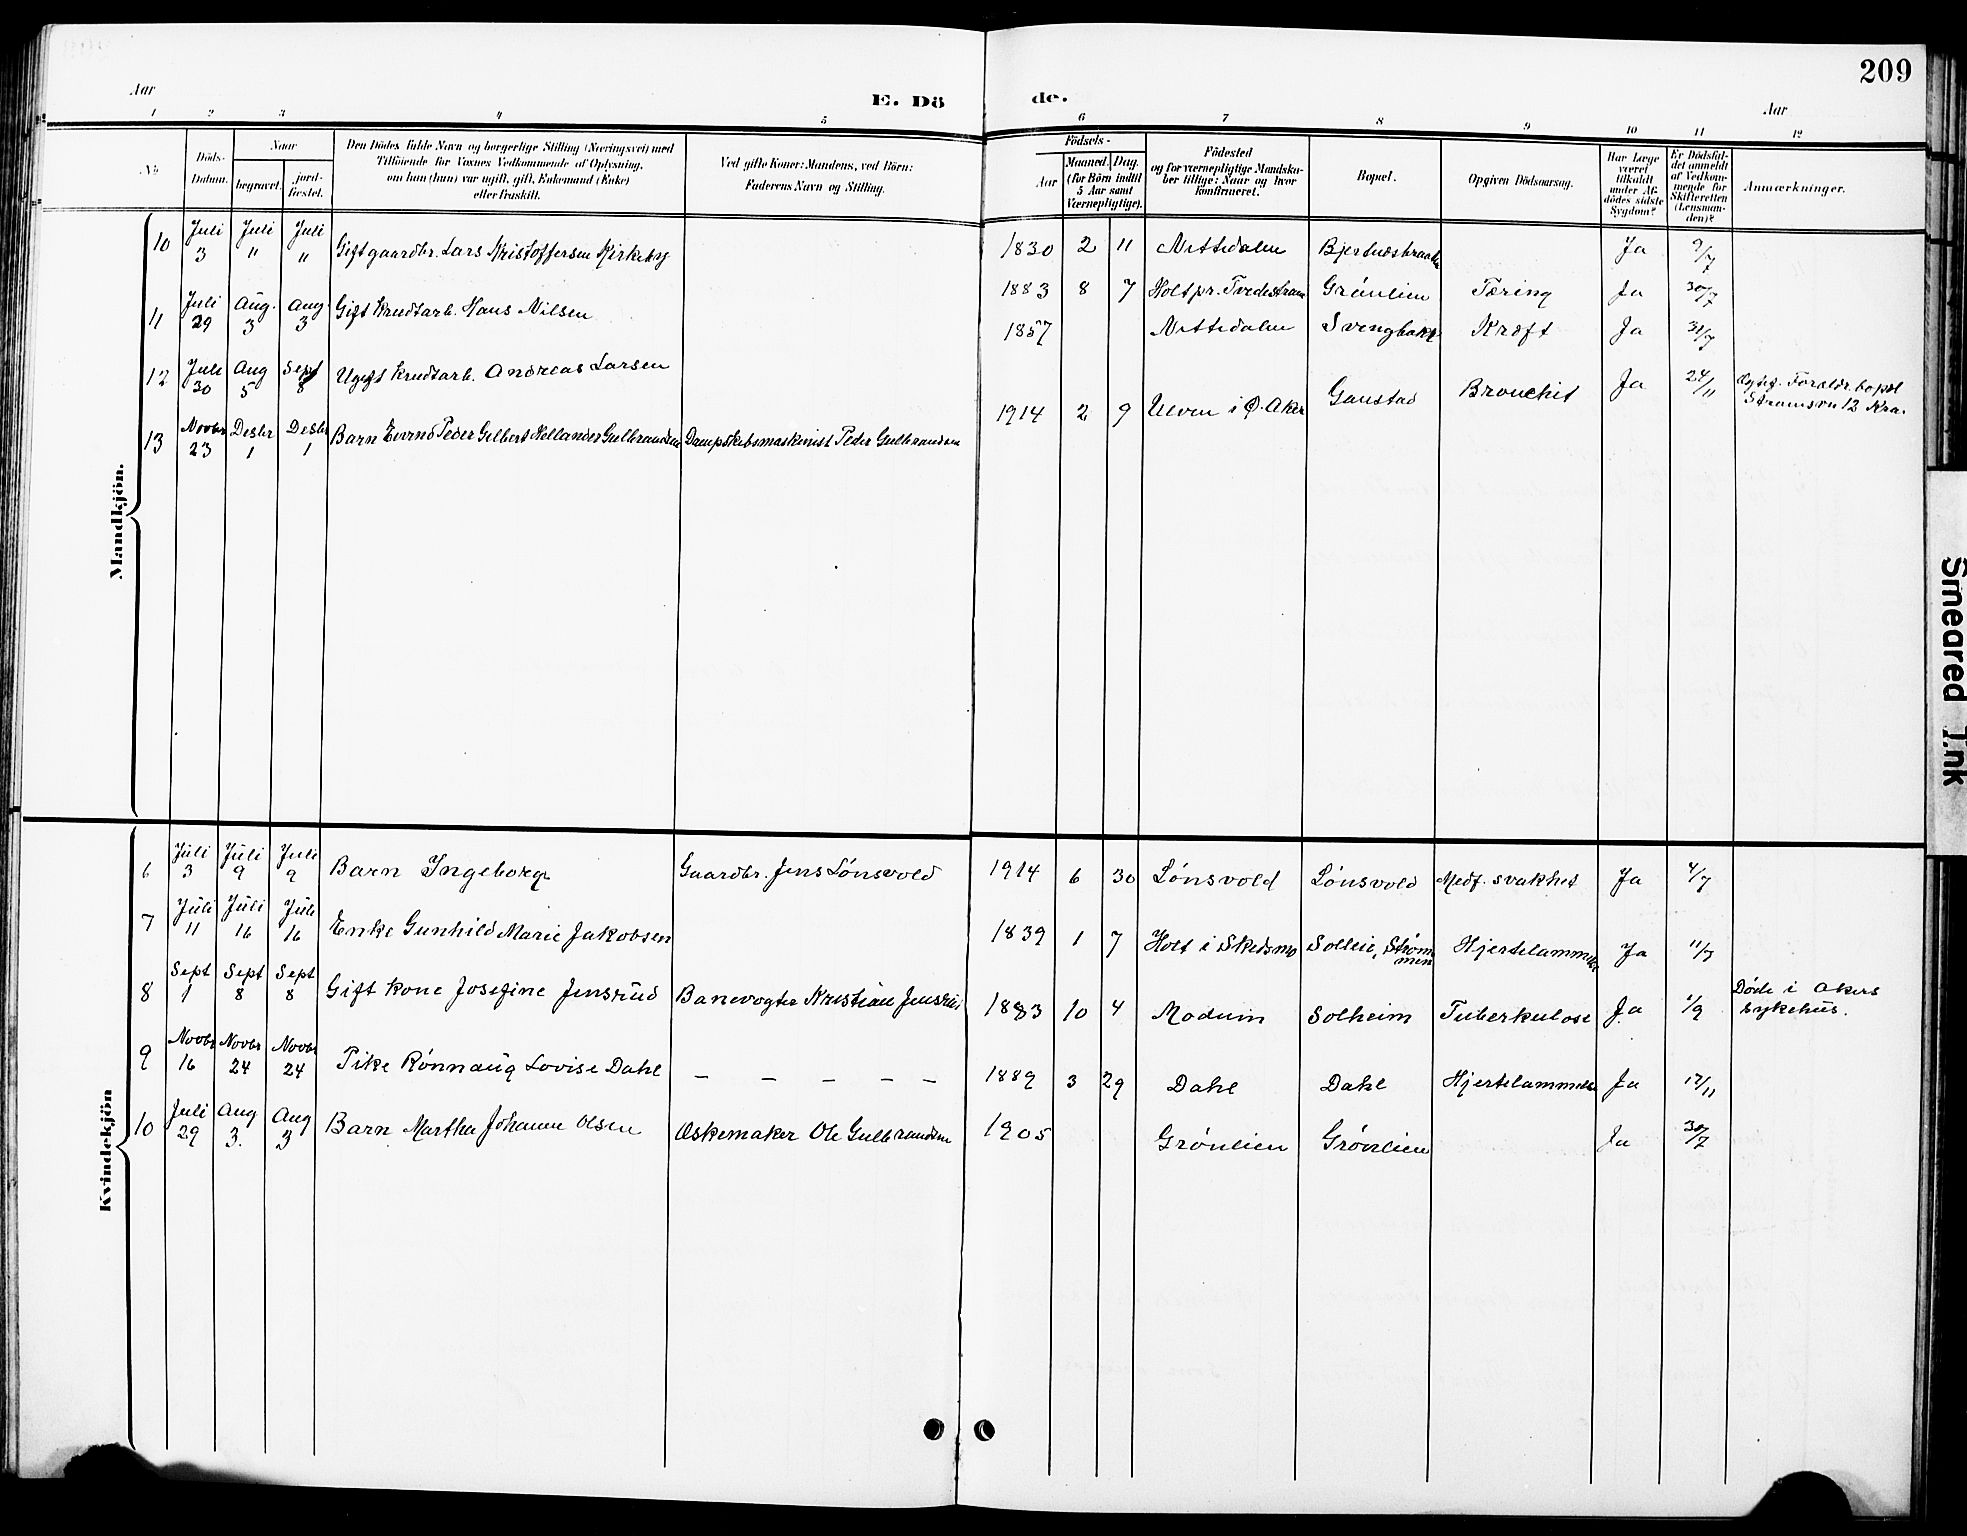 209
Aar
E. Dö
de.
Aar
1 2 3 4 5 6 7 8 9 10 11 12
No.
Döds-
Datum.
Naar
begravet.
jord-
fæstet.
Den Dödes fulde Navn og borgerlige Stilling (Næringsvei) med
Tilföiende for Voxnes Vedkommende af Oplysning,
om han (hun) var ugift, gift, Enkemand (Enke)
eller fraskilt.
Ved gifte Koner: Mandens, ved Börn:
Faderens Navn og Stilling.
Födsels-
Aar
Maaned. Dag.
(for Börn indtil
5 Aar samt
Værnepligtige).
Födested
og for værnepligtige Mandska-
ber tillige: Naar og hvor
konfirmeret.
Bopæl.
Opgiven Dödsaarsag.
Har Læge
været
tilkaldt
under Af-
dödes sidste
Sygdom?
Er Dödsfal-
det anmeldt
af Vedkom-
mende for
Skifteretten
(Lensman-
den)?
Anmærkninger.
Mandkjön.
10 Juli 3 Juli " Juli " Gift gaardbr. Lars Kristoffersen Kirkeby 1830 2 11 Nittedalen Bjertnæsbraaten Ja 9/7
11 Juli 29 Aug. 3 Aug 3 Gift krudtarb. Hans Nilsen 1883 8 7 Holt pr. Tvedestrand Grönlien Tæring Ja 30/7
12 Juli 30 Aug 5 Sept 8 Ugift krudtarb. Andreas Larsen 1857 Nittedalen Svengbakk Kræft Ja 31/7
13 Novbr 23 Desbr 1 Desbr 1 Barn Peder Gilbert Hellander Gulbrandsen Dampskibsmaskinist Peder Gulbrandsen 1914 2 9 Ulven i Ø. Aker Ganstad Bronchit Ja 24/11 Foreldr. bopæl
12 Kra.
Kvindekjön
6 Juli 3 Juli 9 Juli 9 Barn Ingeborg Gaardbr. Jens Lönsvold 1914 6 30 Lönsvold Lönsvold Medf. svakhet Ja 4/7
7 Juli 11 Juli 16 Juli 16 Enke Gunhild Marie Jakobsen 1839 1 7 Holt i Skedsmo Sollie, Strøm
men Hjertelammelse Ja 11/7
8 Sept 1 Sept 8 Sept 8 Gift kone Josefine Jensrud Banevogter Kristian Jensrud 1883 10 4 Modum Solheim Tuberkulose Ja 1/9 Døde i Akers
sykehus.
9 Novbr 16 Novbr 24 Novbr 24 Pike Rønnaug Lovise Dahl – – – – – 1889 3 29 Dahl Dahl Hjertelammelse Ja 17/11
10 Juli 29 Aug 3. Aug 3 Barn Martha Johanne Olsen Æskemaker Ole Gulbrandsen 1905 Grönlien Grönlien Ja 30/7
Smeared Ink